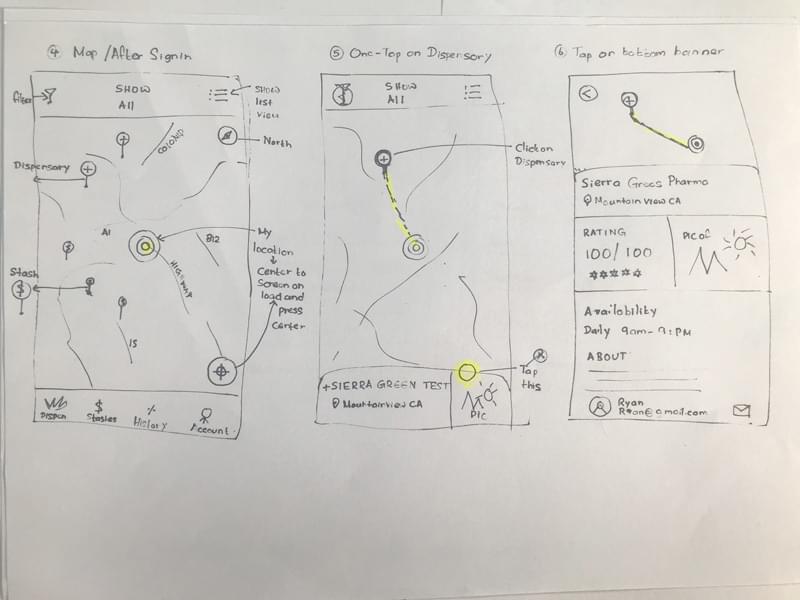 ④ Map / After Signin
filter
SHOW
All
SHOW
list
view
COLONID
North
Dispensary
A1
B12
My
location
Center to
Screen on
load and
press
center
HIGHWAY
Stash
$
15
$
%
Stashes
History
Account
⑤ One-Tap on Dispensary
SHOW
All
Click on
Dispensary
Tap
this
+SIERRA GREEN TEST
MountainView CA
PIC
⑥ Tap on bottom banner
<
Sierra Grees Pharma
Mountain View CA
RATING
100/100
PIC of
Availability
Daily 9am-9:PM
ABOUT
Ryan
Ryan@gmail.com